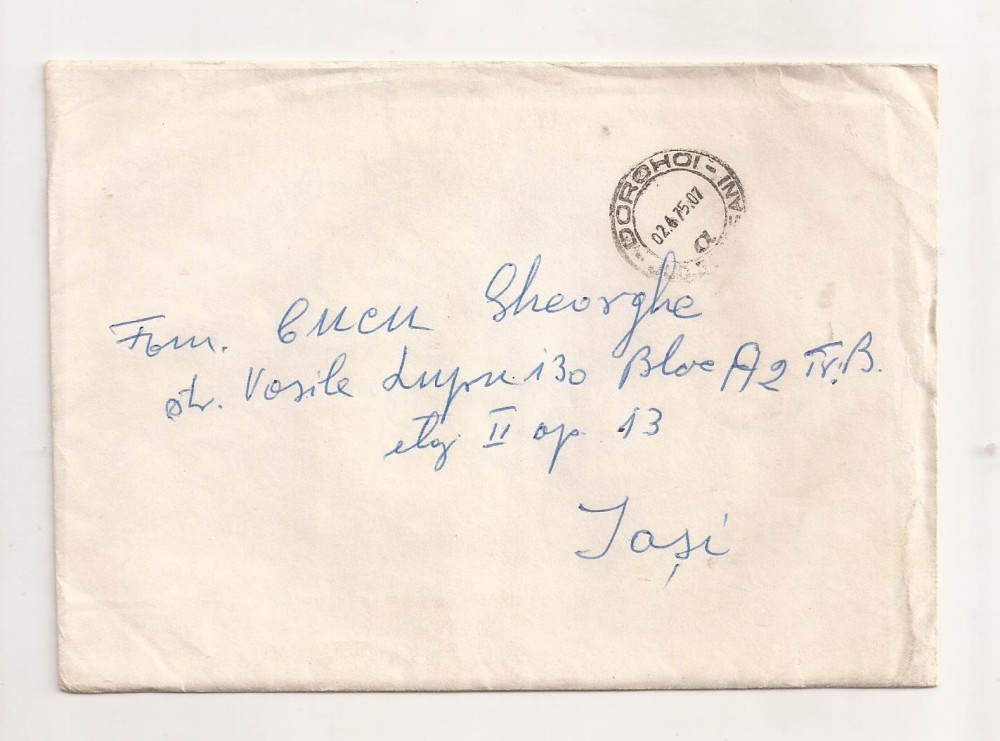 DOROHOI - 
02.6 75.07
a
Fam. CUCU Gheorghe
str. Vasile Lupu 130 Bloc A2 Tr. B.
etaj II ap. 13
Iași